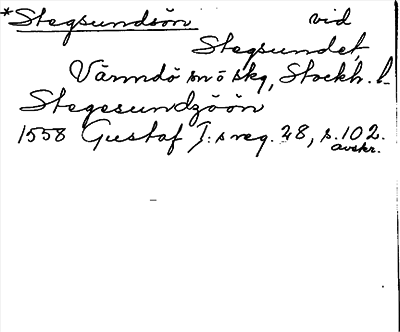 *Stegsundsön vid
Stegsundet,
Värmdö sn o skg, Stockh. l.
Stegesundzöön
1558 Gustaf I:s reg. 28, s. 102.
avskr.